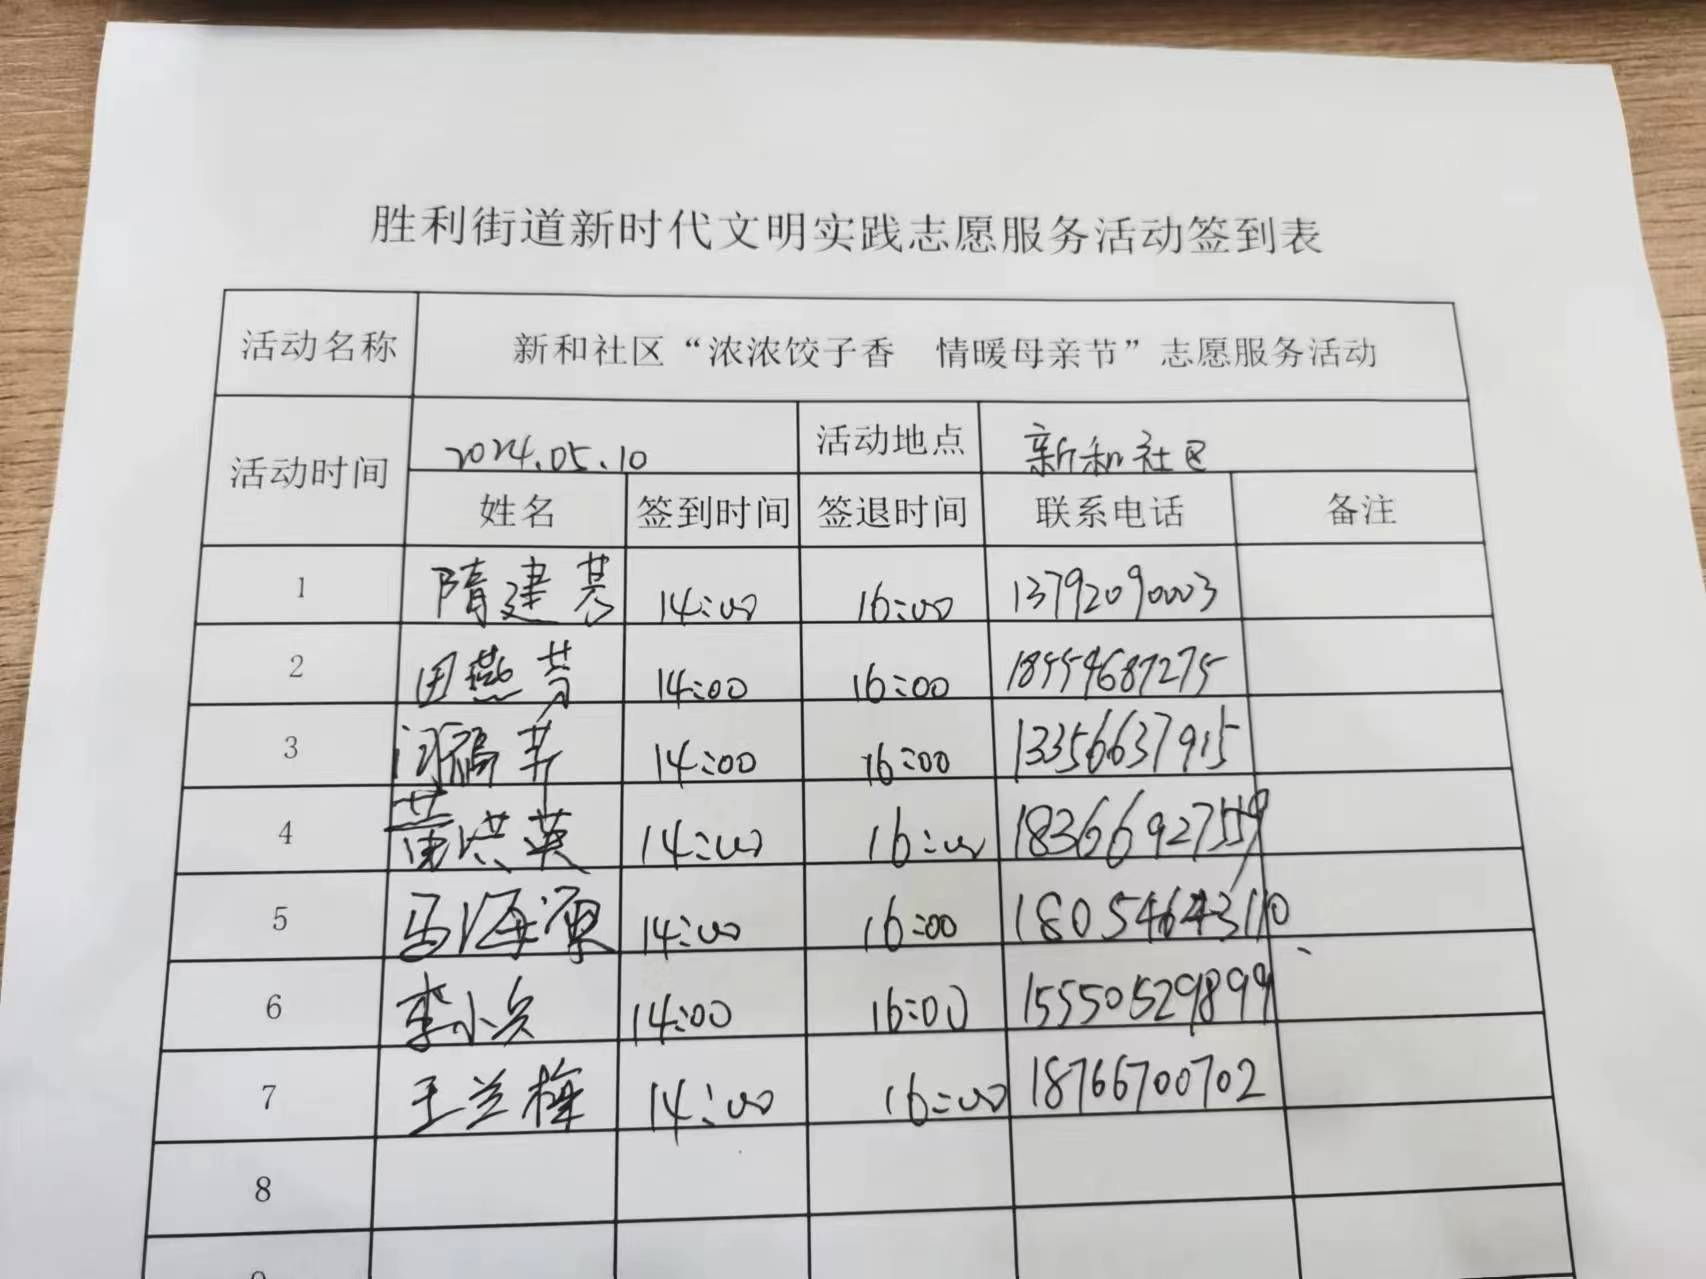 胜利街道新时代文明实践志愿服务活动签到表
活动名称 新和社区“浓浓饺子香 情暖母亲节”志愿服务活动
活动时间 2024.05.10 活动地点 新和社区
姓名 签到时间 签退时间 联系电话 备注
1 隋建 14:00 16:00 13792090003
2 田燕芳 14:00 16:00 18554687275
3 福 14:00 16:00 13356637915
4 黄洪英 14:00 16:00
5 马海 14:00 16:00
6 李小兵 14:00 16:00 15550529899
7 王兰梅 14:00 16:00 18766700702
8